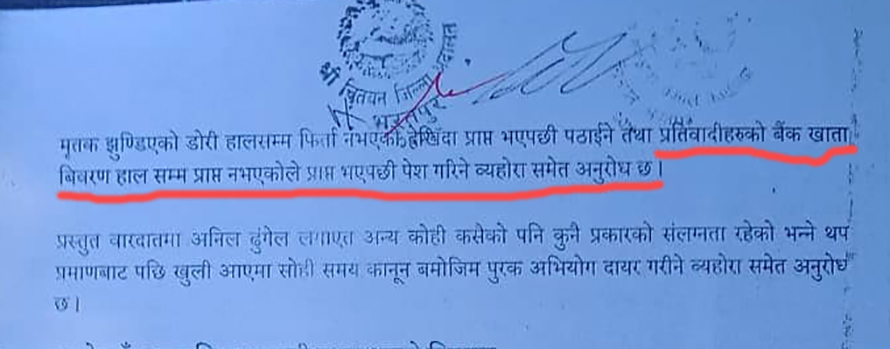 श्री चितवन जिल्ला अदालत
भरतपुर
मृतक झुण्डिएको डोरी हालसम्म फिर्ता नभएको देखिंदा प्राप्त भएपछी पठाईने तथा प्रतिवादीहरुको बैंक खाता
बिवरण हाल सम्म प्राप्त नभएकोले प्राप्त भएपछी पेश गरिने व्यहोरा समेत अनुरोध छ।
प्रस्तुत वारदातमा अनिल ढुंगेल लगाएत अन्य कोही कसैको पनि कुनै प्रकारको संलग्नता रहेको भन्ने थप
प्रमाणबाट पछि खुली आएमा सोही समय कानून बमोजिम पुरक अभियोग दायर गरीने व्यहोरा समेत अनुरोध
छ।